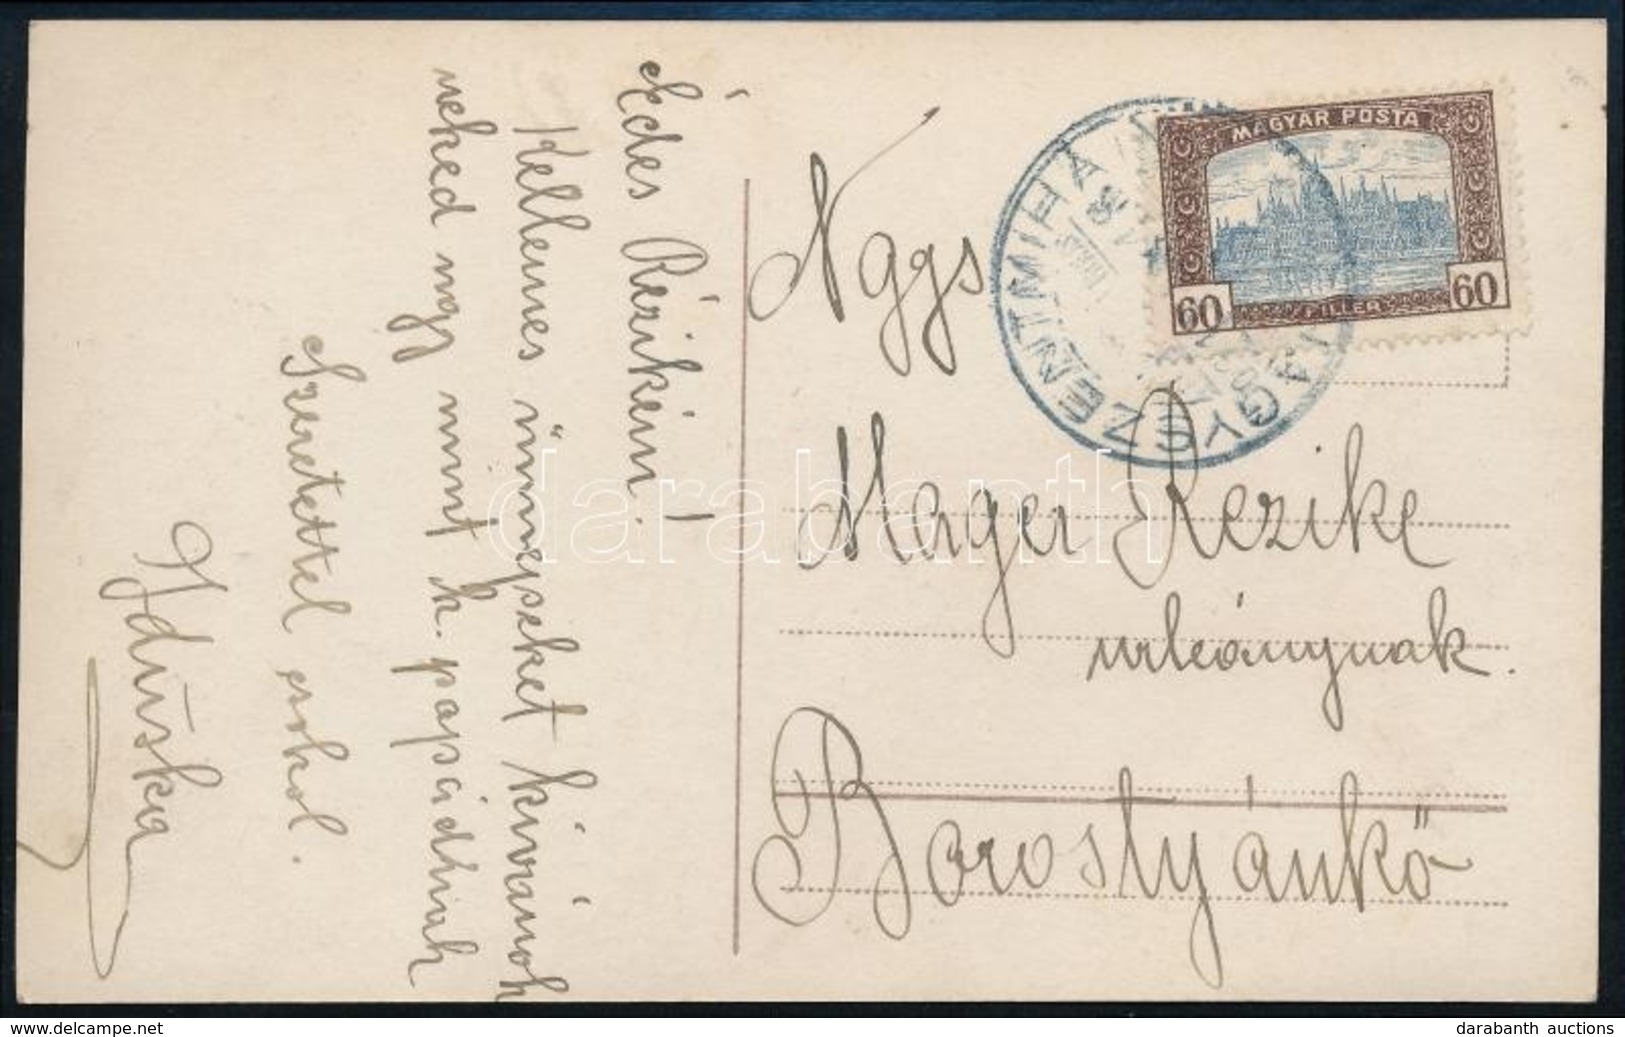 Édes Rézikém!
Kellemes ünnepeket kivánok
neked ugy mint k. papádnak
Szeretettel csokol.
Iduska
MAGYAR POSTA
60 FILLÉR 60
NAGYSZENTMIHÁLY
Nggs
Mager Rezike
urleánynak.
Borostyánkő
darabanth
www.darabanth.com
darabanth auctions